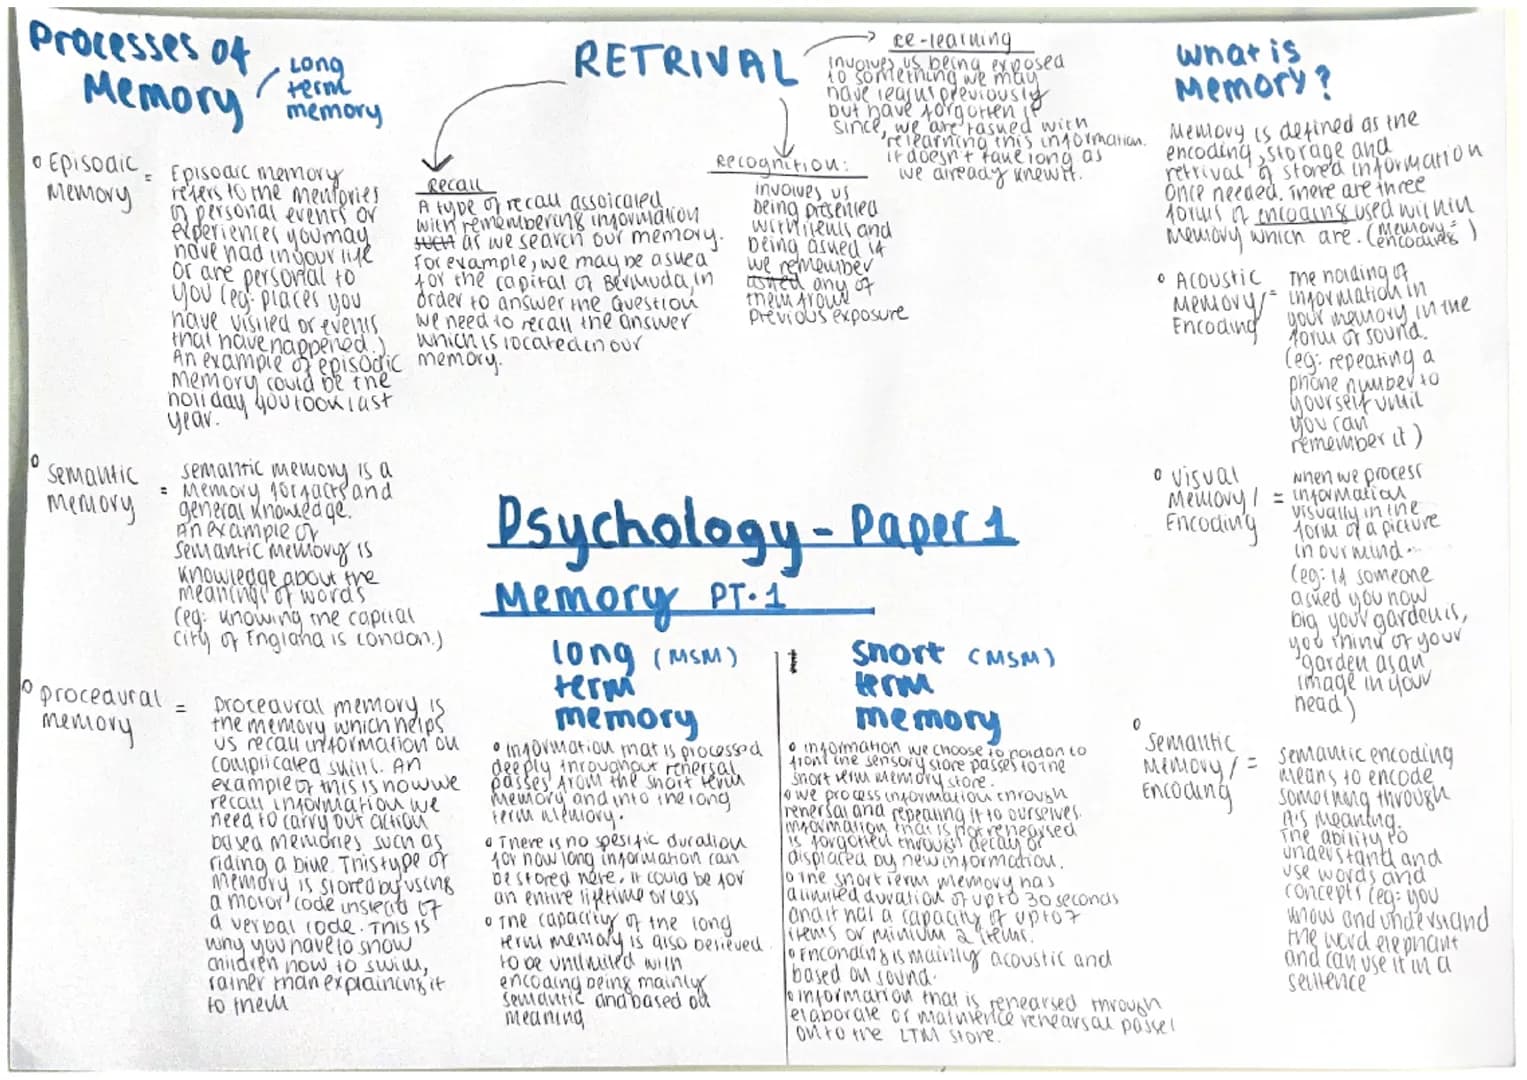 Processes of
Memory
Long
term
memory
Episodic
Memory
=
Episodic memory
refers to the memories
of personal events or
experiences you may
have had in your life
or are personal to
you (eg: places you
have visited or events
that have happened.)
An example of episodic
memory could be the
holiday you took last
year.
Semantic
Memory
=
semantic memory is a
memory for facts and
general knowledge.
An example of
semantic memory is
knowledge about the
meanings of words
(eg: knowing the capital
city of England is London.)
procedural
memory
=
procedural memory is
the memory which helps
us recall information on
complicated skills. An
example of this is how we
recall information we
need to carry out action
based memories such as
riding a bike. This type of
memory is stored by using
a motor code instead of
a verbal code. This is
why you have to show
children how to swim,
rather than explaining it
to them
RETRIVAL
Recall
A type of recall assoicated
with remembering information
such as we search our memory.
for example, we may be asked
for the capital of Bermuda, in
order to answer the question
we need to recall the answer
which is located in our
memory.
Recognition:
involves us
being presented
with items and
being asked if
we remember
asked any of
them from
previous exposure
re-learning
involves us being exposed
to something we may
have previously
but have forgotten it
since, we are tasked with
relearning this information.
it doesn't take long as
we already knew it.
What is
Memory?
Memory is defined as the
encoding, storage and
retrieval of stored information
once needed. There are three
forms of encoding used within
memory which are. (memory =
encodings)
Acoustic
Memory/
Encoding
=
The holding of
information in
your memory in the
form of sound.
(eg: repeating a
phone number to
yourself until
you can
remember it)
Visual
Memory/
Encoding
=
when we process
information
visually in the
form of a picture
in our mind..
(eg: if someone
asked you how
big your garden is,
you think of your
garden as an
image in your
head)
Semantic
Memory/
Encoding
=
semantic encoding
means to encode
something through
it's meaning.
The ability to
understand and
use words and
concepts (eg: you
know and understand
the word elephant
and can use it in a
sentence
Psychology - Paper 1
Memory PT.1
long (MSM)
term
memory
information that is processed
deeply throughout rehersal
passes from the short term
memory and into the long
term memory.
There is no spesific duration
for how long information can
be stored here, it could be for
an entire lifetime or less
The capacity of the long
term memory is also believed
to be unlimited with
encoding being mainly
semantic and based on
meaning
short (MSM)
term
memory
information we choose to hold on to
from the sensory store passes to the
short term memory store.
we process information through
rehersal and repeating it to ourselves.
information that is not rehearsed
is forgotten through decay or
displaced by new information.
The short term memory has
a limited duration of up to 30 seconds
and it has a capacity of up to 7
items or minium 2 items.
Enconding is mainly acoustic and
based on sound.
information that is rehearsed through
elaborate or maintence rehearsal passes
onto the LTM store.